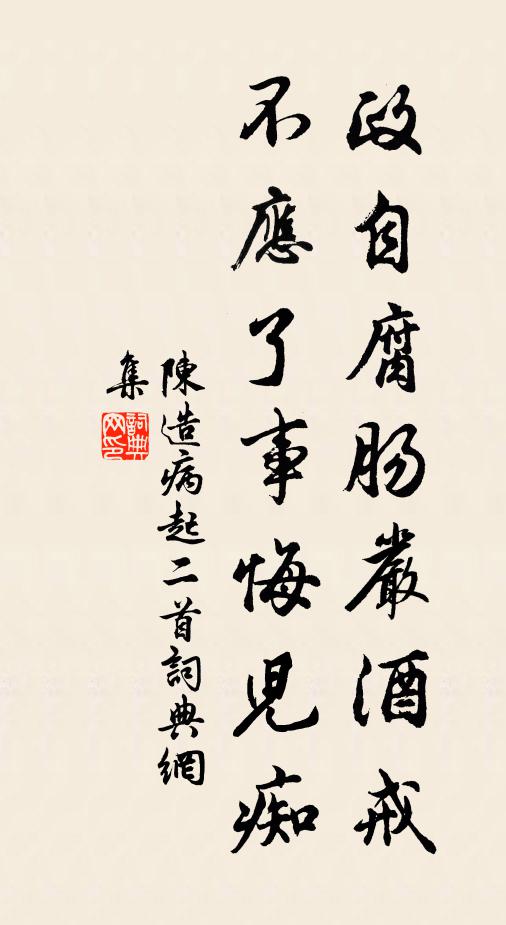 政自腐腸嚴酒戒
不應了事悔兒痴
陳造病起二首詞典網
集
詞典網印